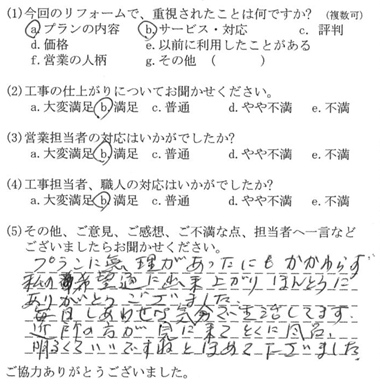 (1)今回のリフォームで、重視されたことは何ですか? (複数可)
a.プランの内容 b.サービス・対応 c. 評判
d.価格 e.以前に利用したことがある
f.営業の人柄 g.その他 ( )
(2)工事の仕上がりについてお聞かせください。
a.大変満足 b.満足 c.普通 d.やや不満 e.不満
(3)営業担当者の対応はいかがでしたか?
a.大変満足 b.満足 c.普通 d.やや不満 e.不満
(4)工事担当者、職人の対応はいかがでしたか?
a.大変満足 b.満足 c.普通 d.やや不満 e.不満
(5)その他、ご意見、ご感想、ご不満な点、担当者へ一言など
ございましたらお聞かせください。
プランに無理があったにもかかわらず
私の希望通に出来上がりほんとうに
ありがとうございました。
毎日しあわせな気分で生活してます。
近所の方が見に来てとくに風呂、
明るくていいですねとほめて下さいました。
ご協力ありがとうございました。